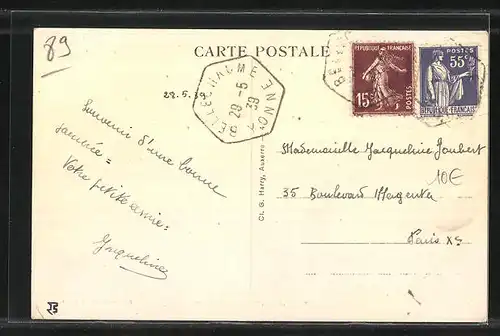 89
CARTE POSTALE
28.5.39
BELLECHAUME YONNE
29-5
39
REPUBLIQUE FRANÇAISE
15c
POSTES
55c
POSTES
REPUBLIQUE-FRANÇAISE
Souvenir d'une bonne
journée =
Votre petite amie.
Jacqueline
Cl. G. Harry, Auxerre
Mademoiselle Jacqueline Joubert
10€
35 Boulevard Magenta
Paris Xe